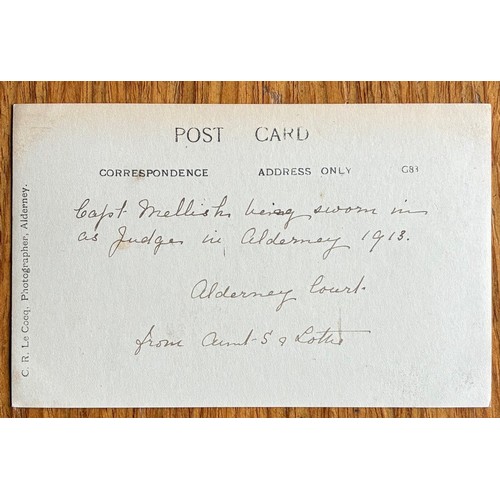 POST CARD
CORRESPONDENCE ADDRESS ONLY G83
Capt. Mellish being sworn in
as Judge in Alderney 1913.
Alderney Court.
from Aunt S & Lottie
C. R. Le Cocq, Photographer, Alderney.